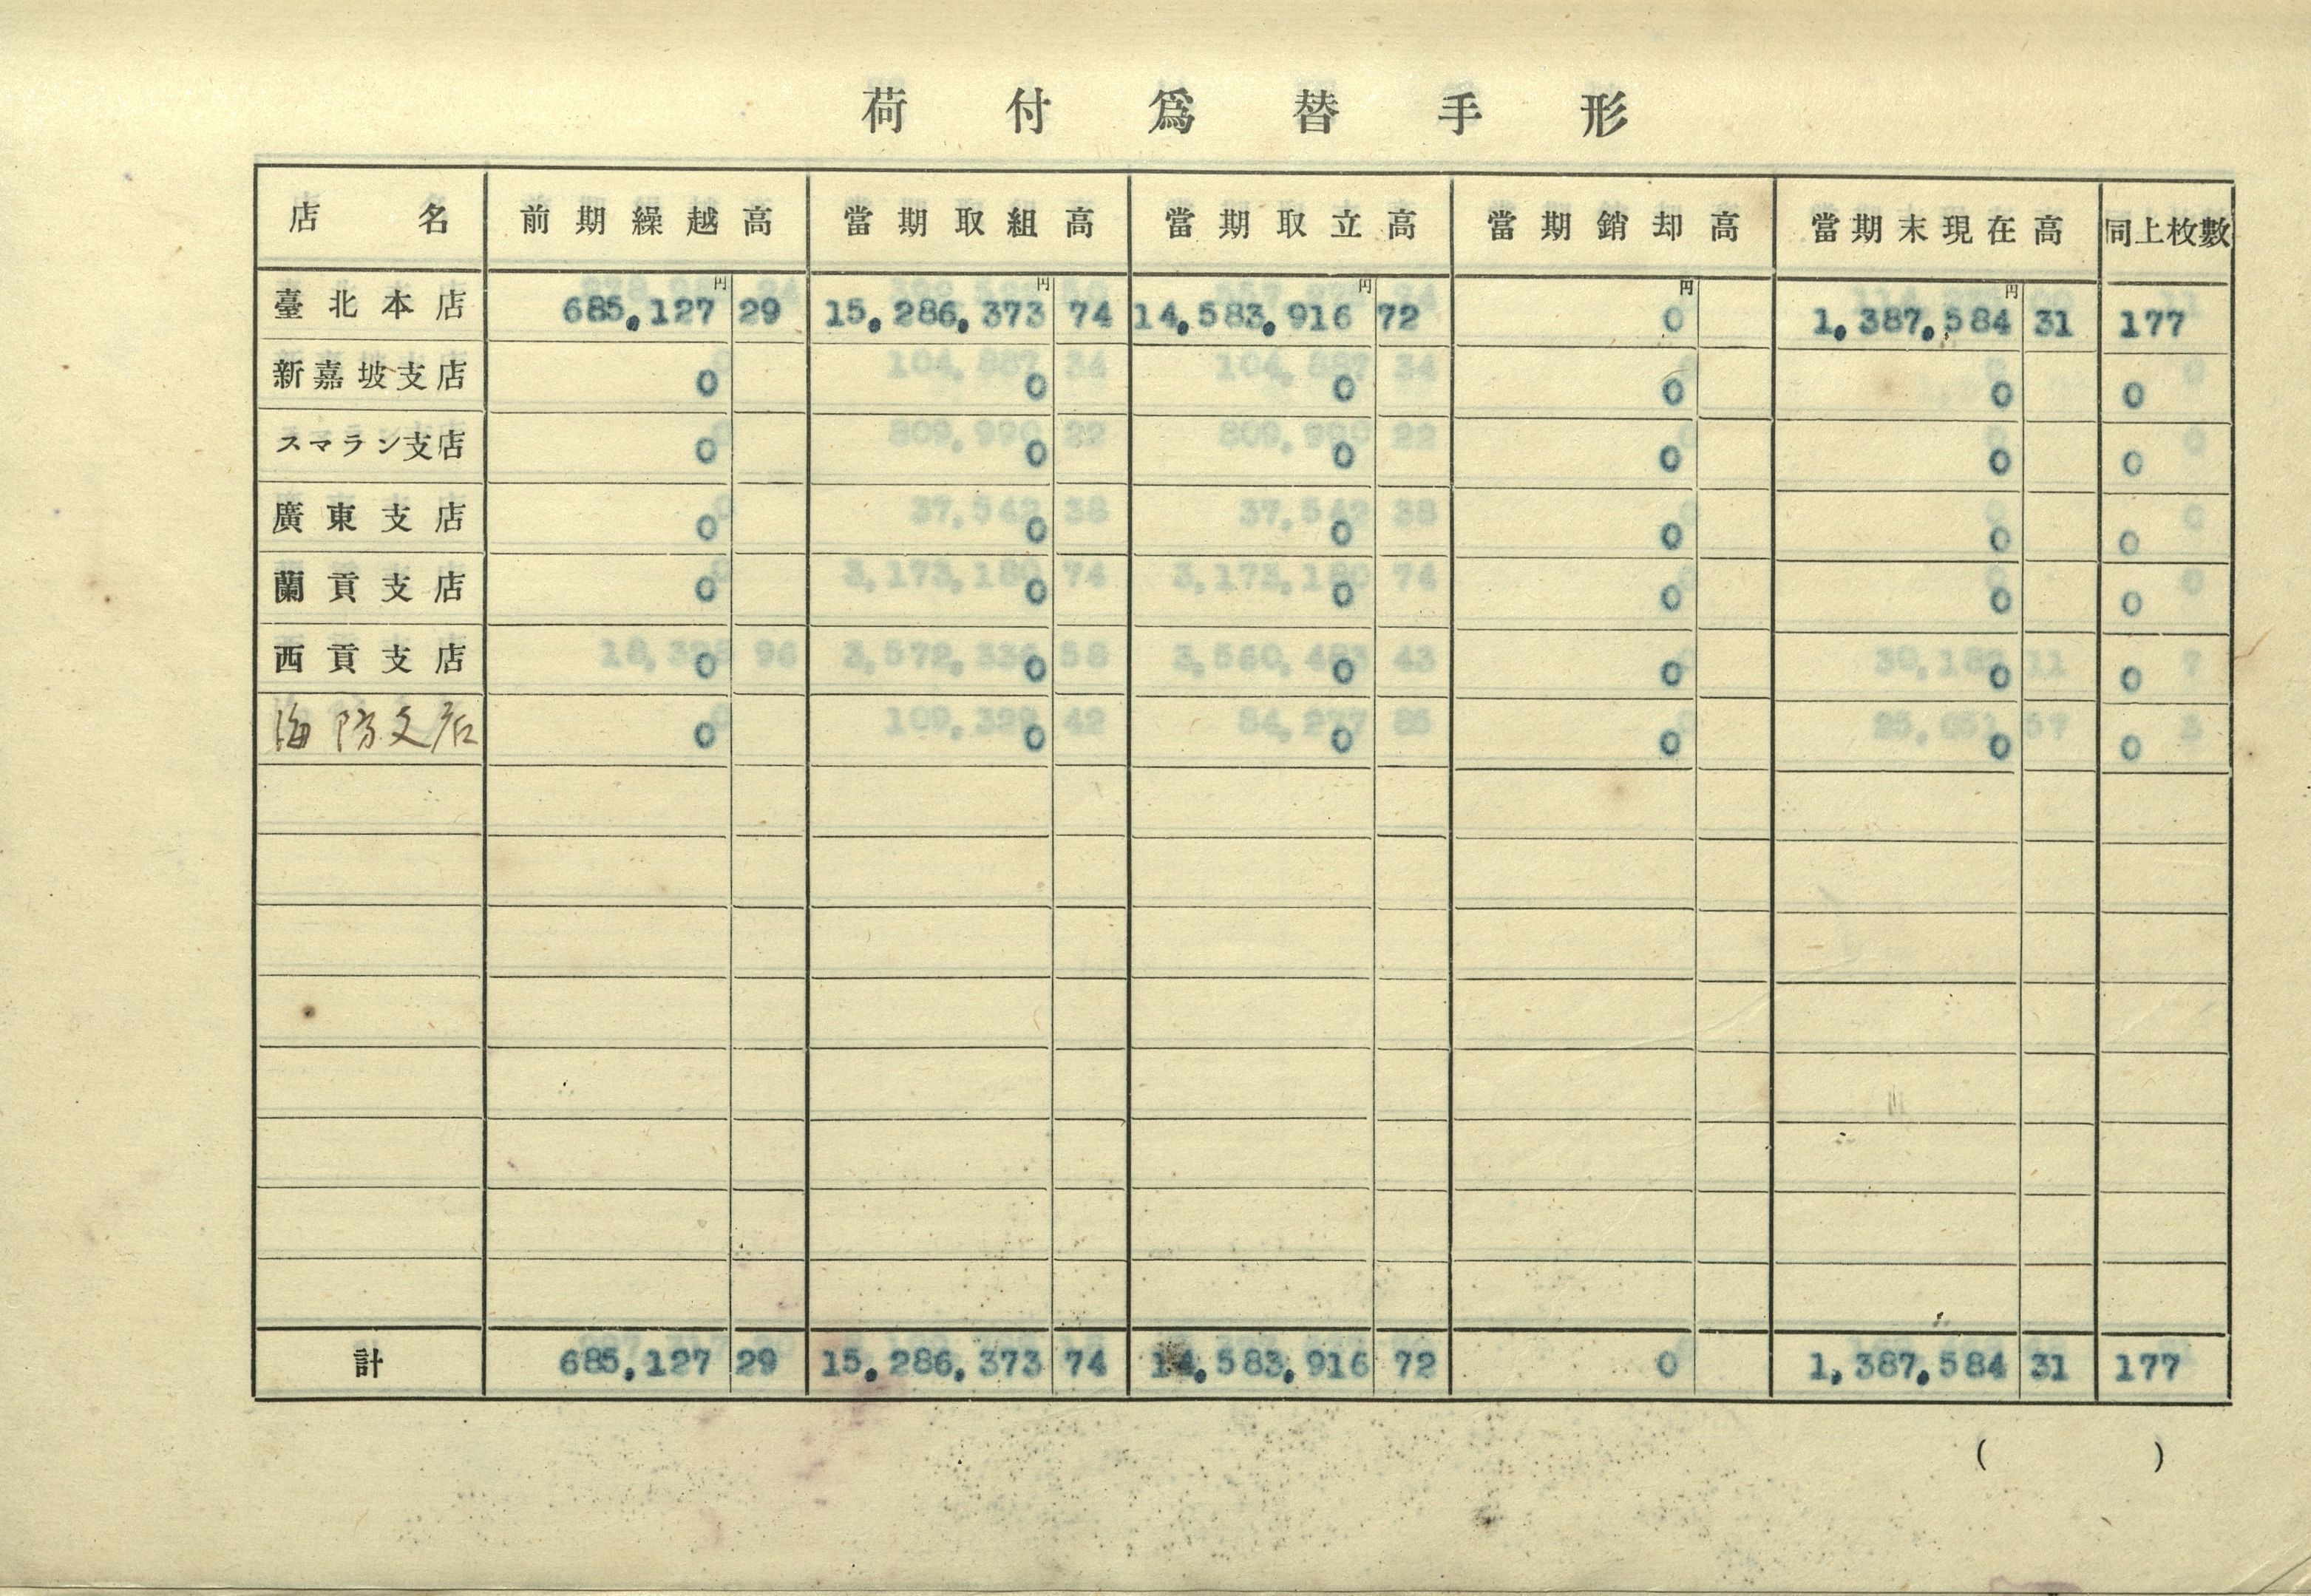 荷付爲替手形
店名 前期繰越高 當期取組高 當期取立高 當期銷却高 當期末現在高 同上枚數
円 円 円 円 円
臺北本店 685,127 29 15,286,373 74 14,583,916 72 0 1,387,584 31 177
新嘉坡支店 0 0 0 0 0 0
スマラン支店 0 0 0 0 0 0
廣東支店 0 0 0 0 0 0
蘭貢支店 0 0 0 0 0 0
西貢支店 0 0 0 0 0 0
海防支店 0 0 0 0 0 0
計 685,127 29 15,286,373 74 14,583,916 72 0 1,387,584 31 177
( )